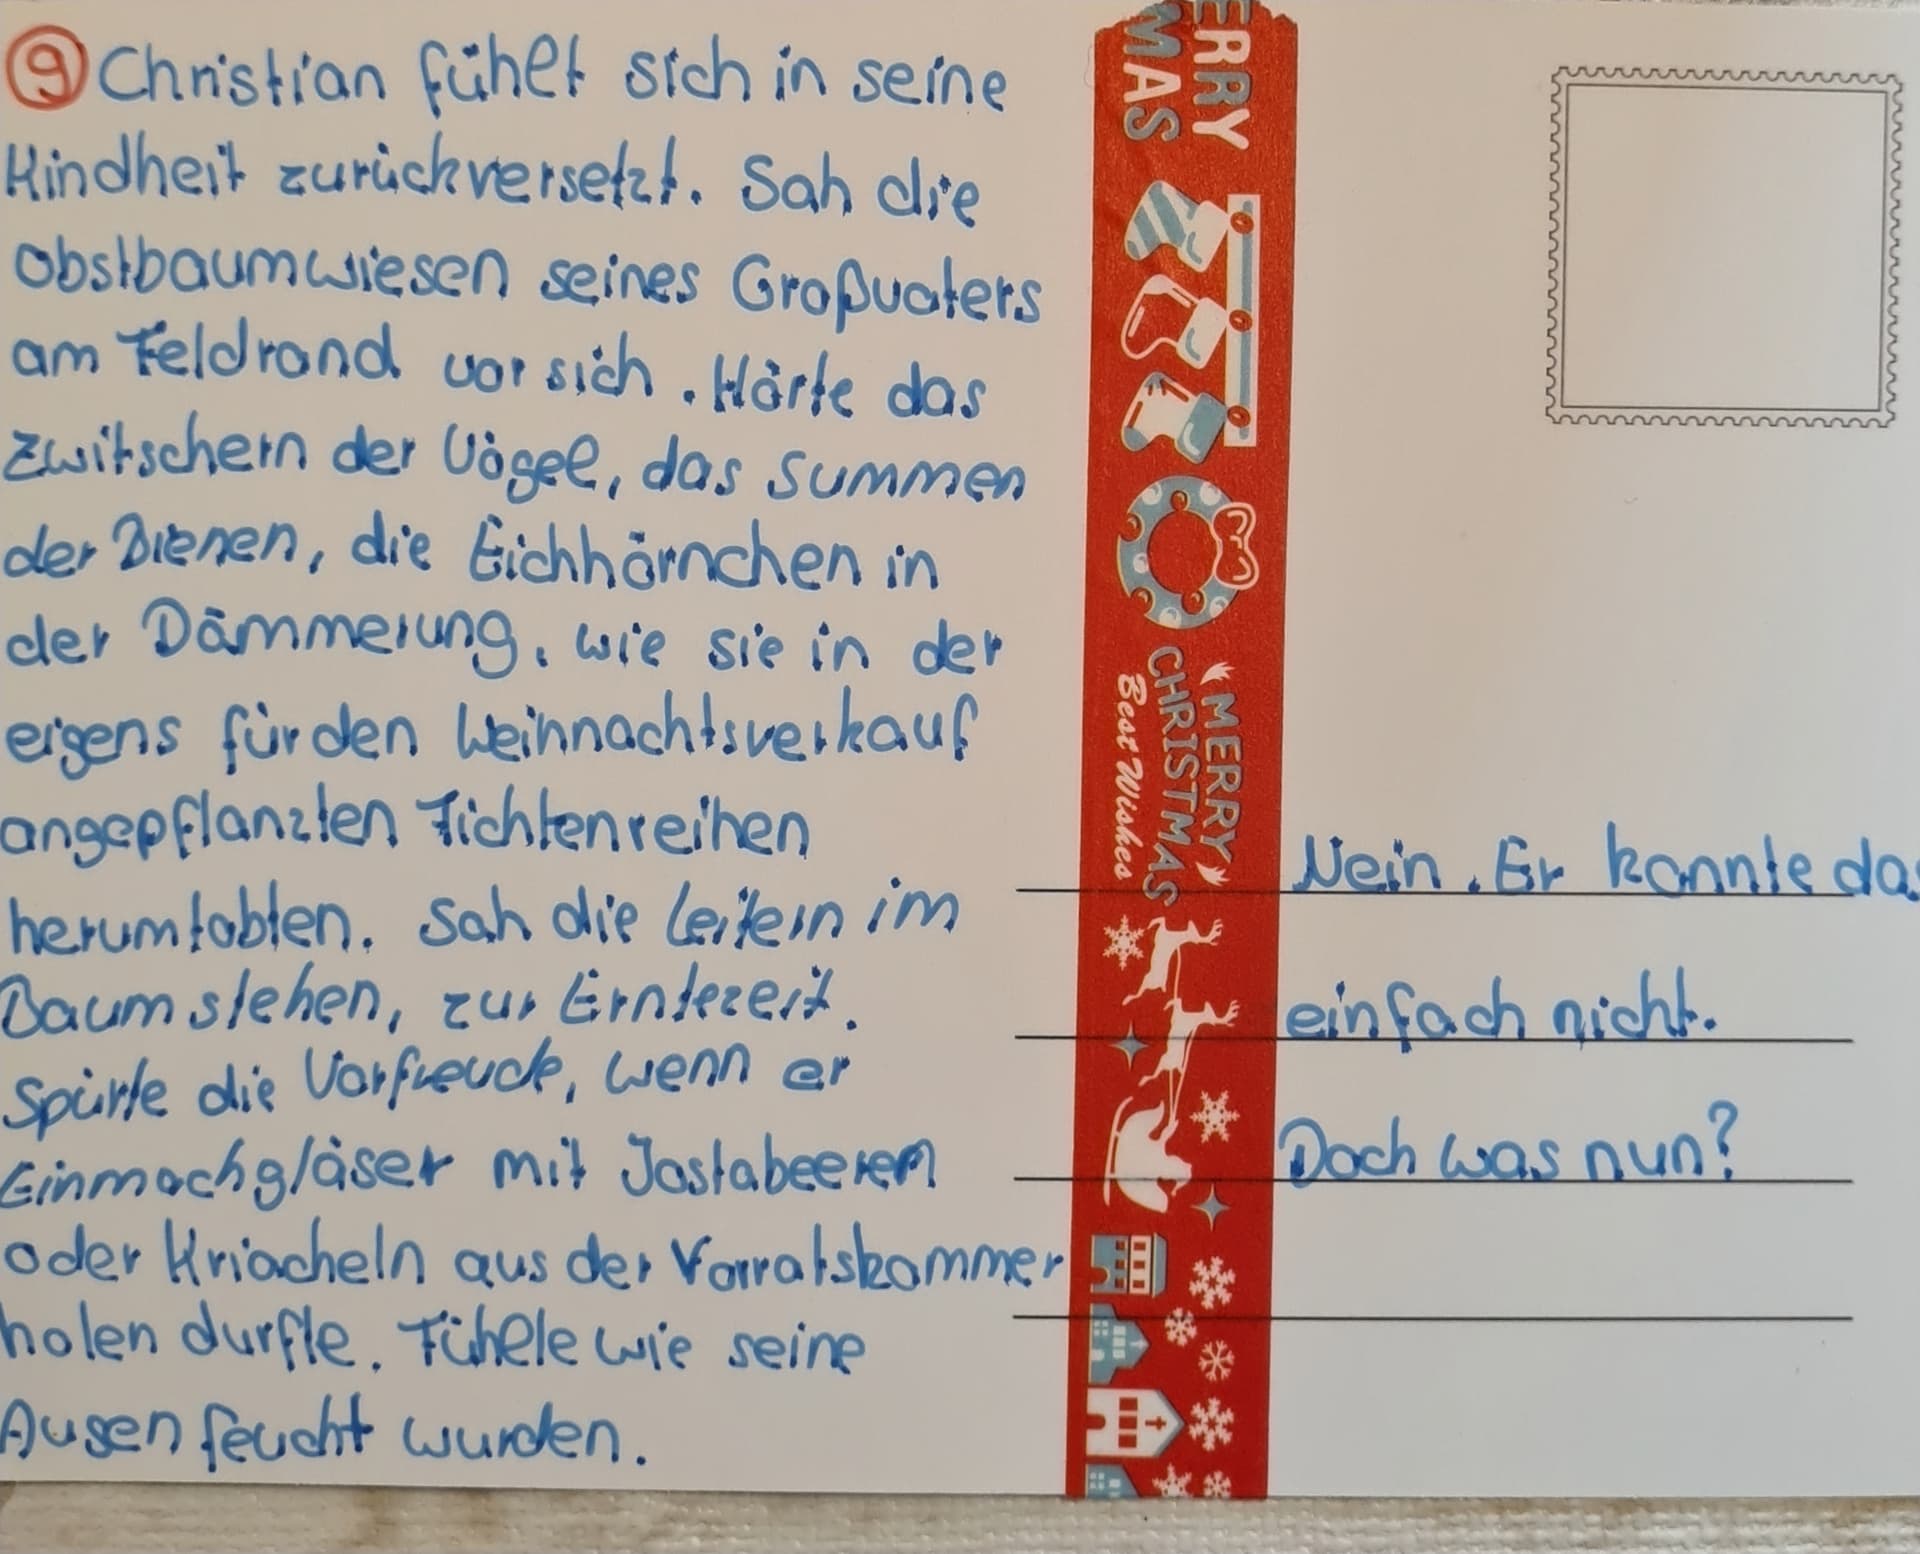 9 Christian fühlt sich in seine
Kindheit zurückversetzt. Sah die
Obstbaumwiesen seines Großvaters
am Feldrand vor sich. Hörte das
Zwitschern der Vögel, das Summen
der Bienen, die Eichhörnchen in
der Dämmerung, wie sie in der
eigens für den Weihnachtsverkauf
angepflanzten Fichtenreihen
herumtobten. Sah die Leitern im
Baum stehen, zur Erntezeit.
Spürte die Vorfreude, wenn er
Einmachgläser mit Jostabeeren
oder Kriacheln aus der Vorratskammer
holen durfte. Fühlte wie seine
Augen feucht wurden.
ERRY
MAS
MERRY
CHRISTMAS
Best Wishes
Nein. Er konnte das
einfach nicht.
Doch was nun?